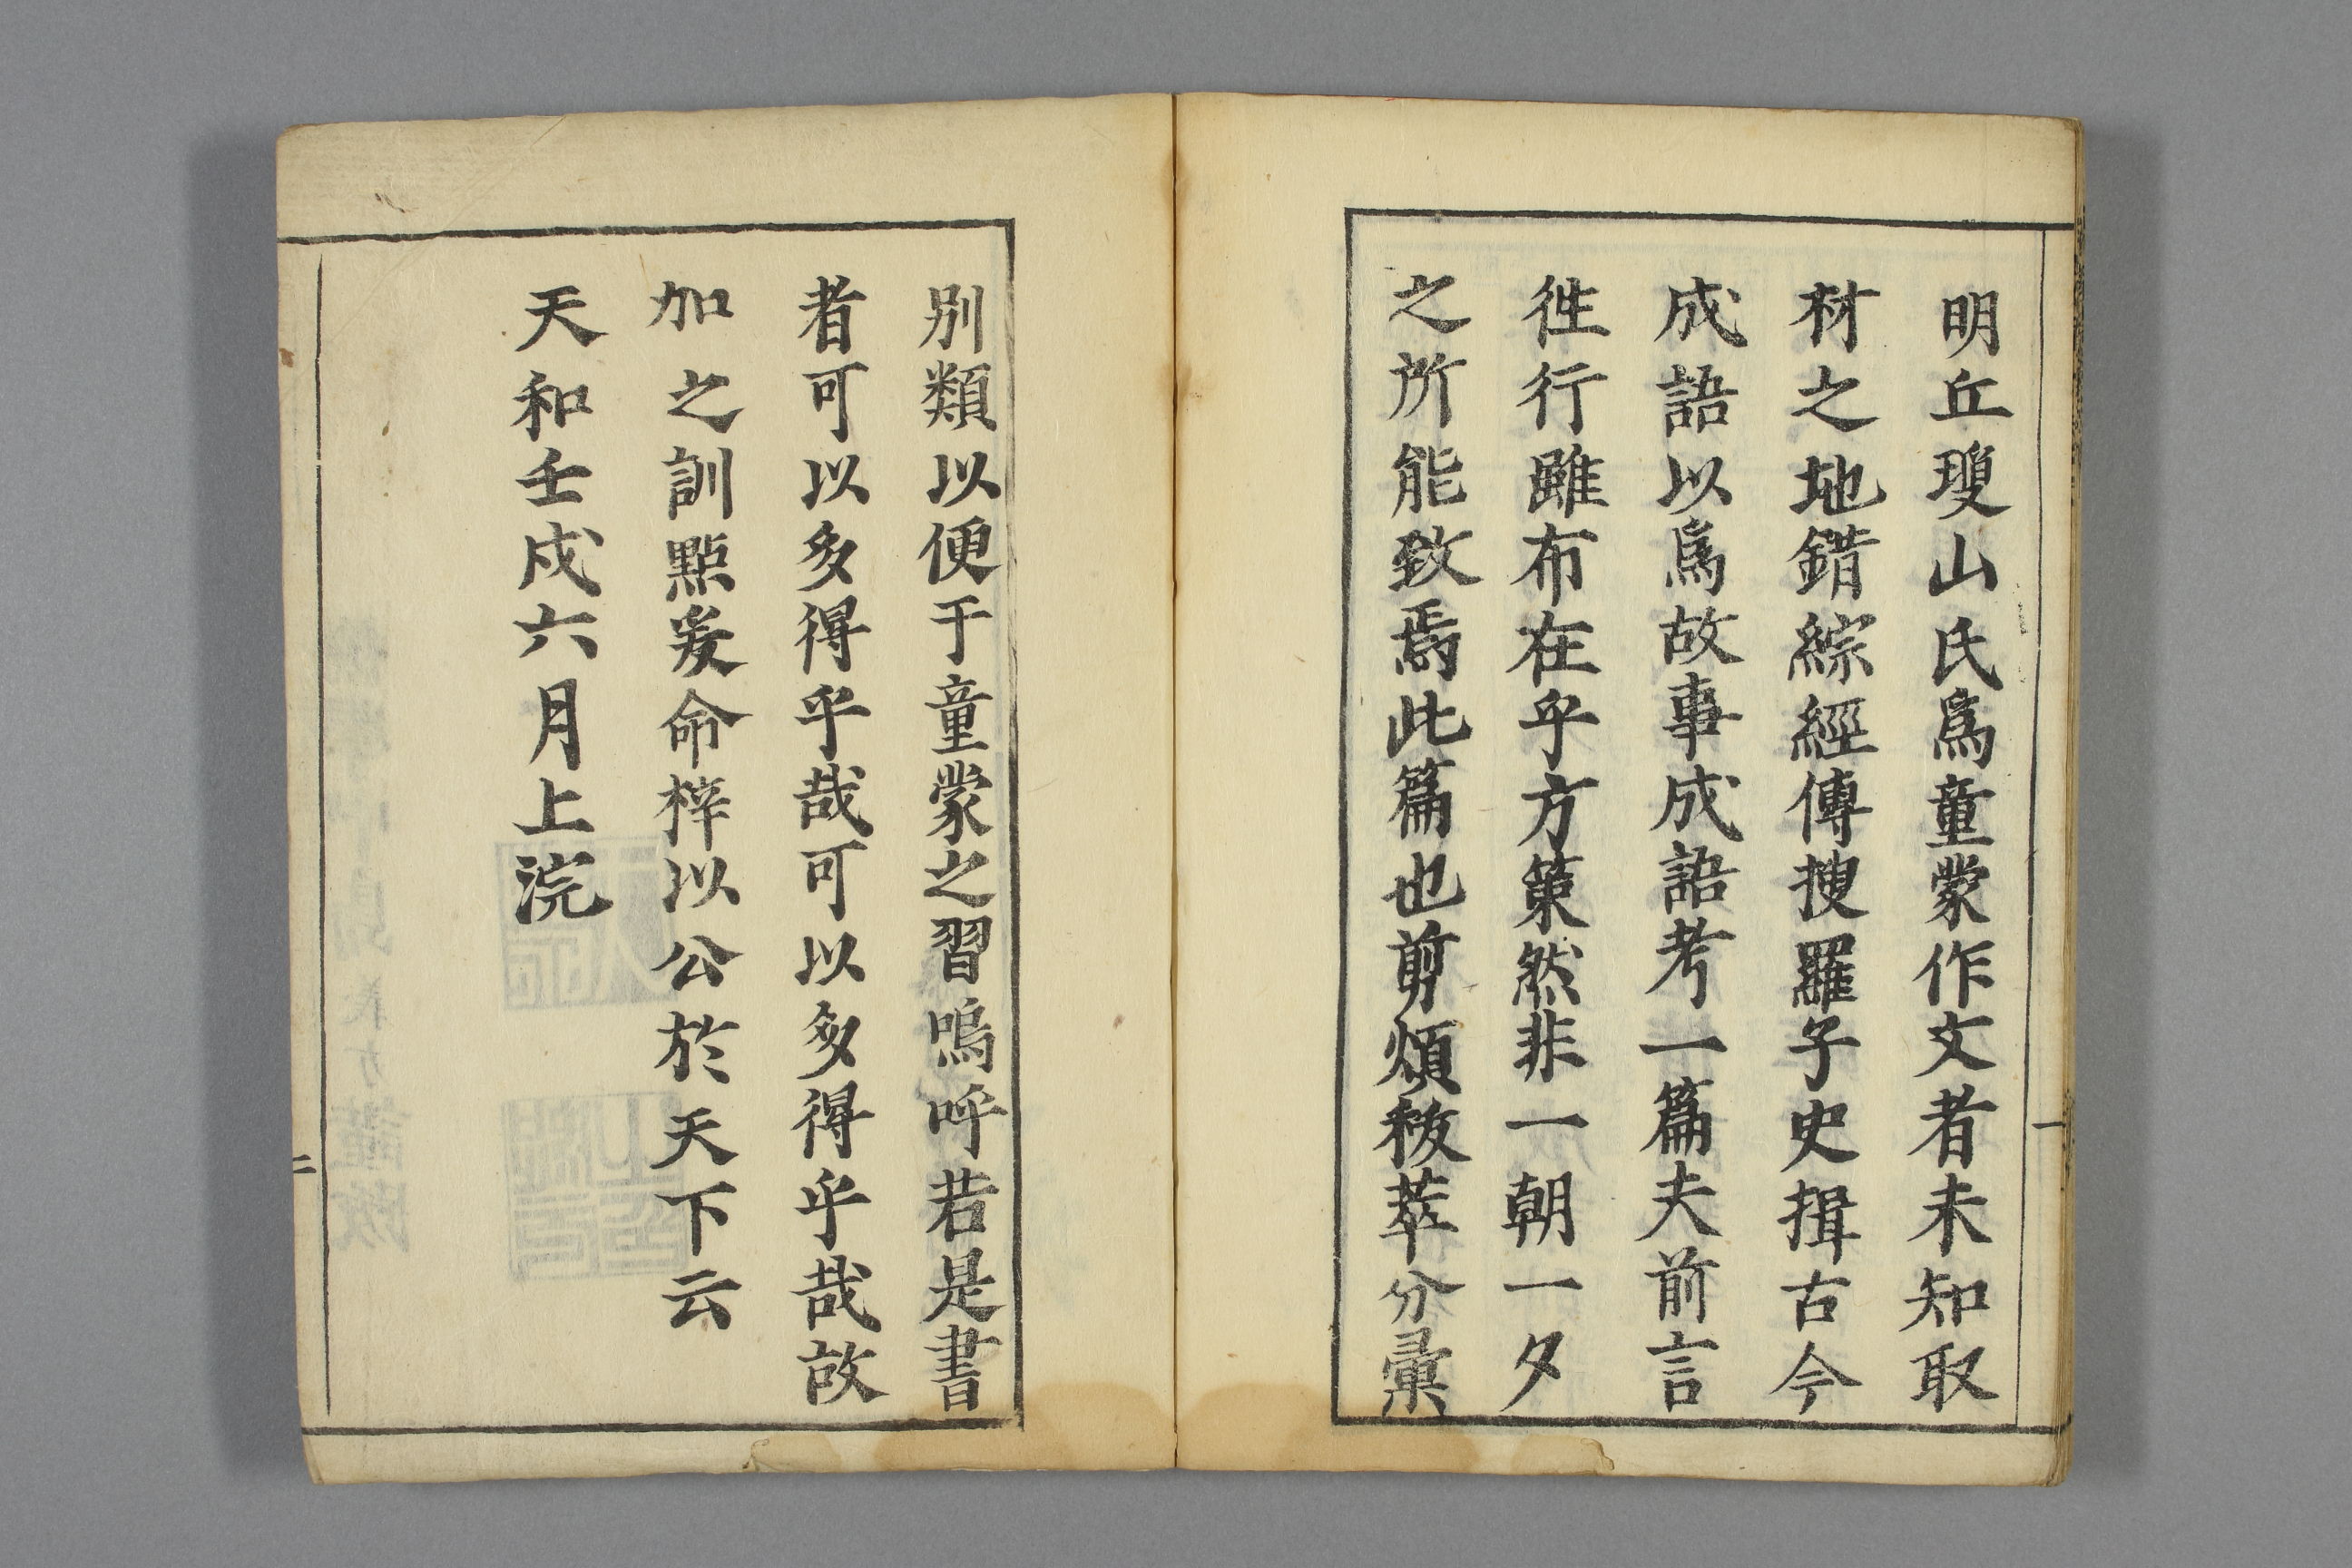 明丘瓊山氏爲童蒙作文者未知取
材之地錯綜經傳搜羅子史揖古今
成語以爲故事成語考一篇夫前言
徃行雖布在乎方策然非一朝一夕
之所能致焉此篇也剪煩秡萃分彙
別類以便于童蒙之習嗚呼若是書
者可以多得乎哉可以多得乎哉故
加之訓點爰命梓以公於天下云
天和壬戌六月上浣
一
二